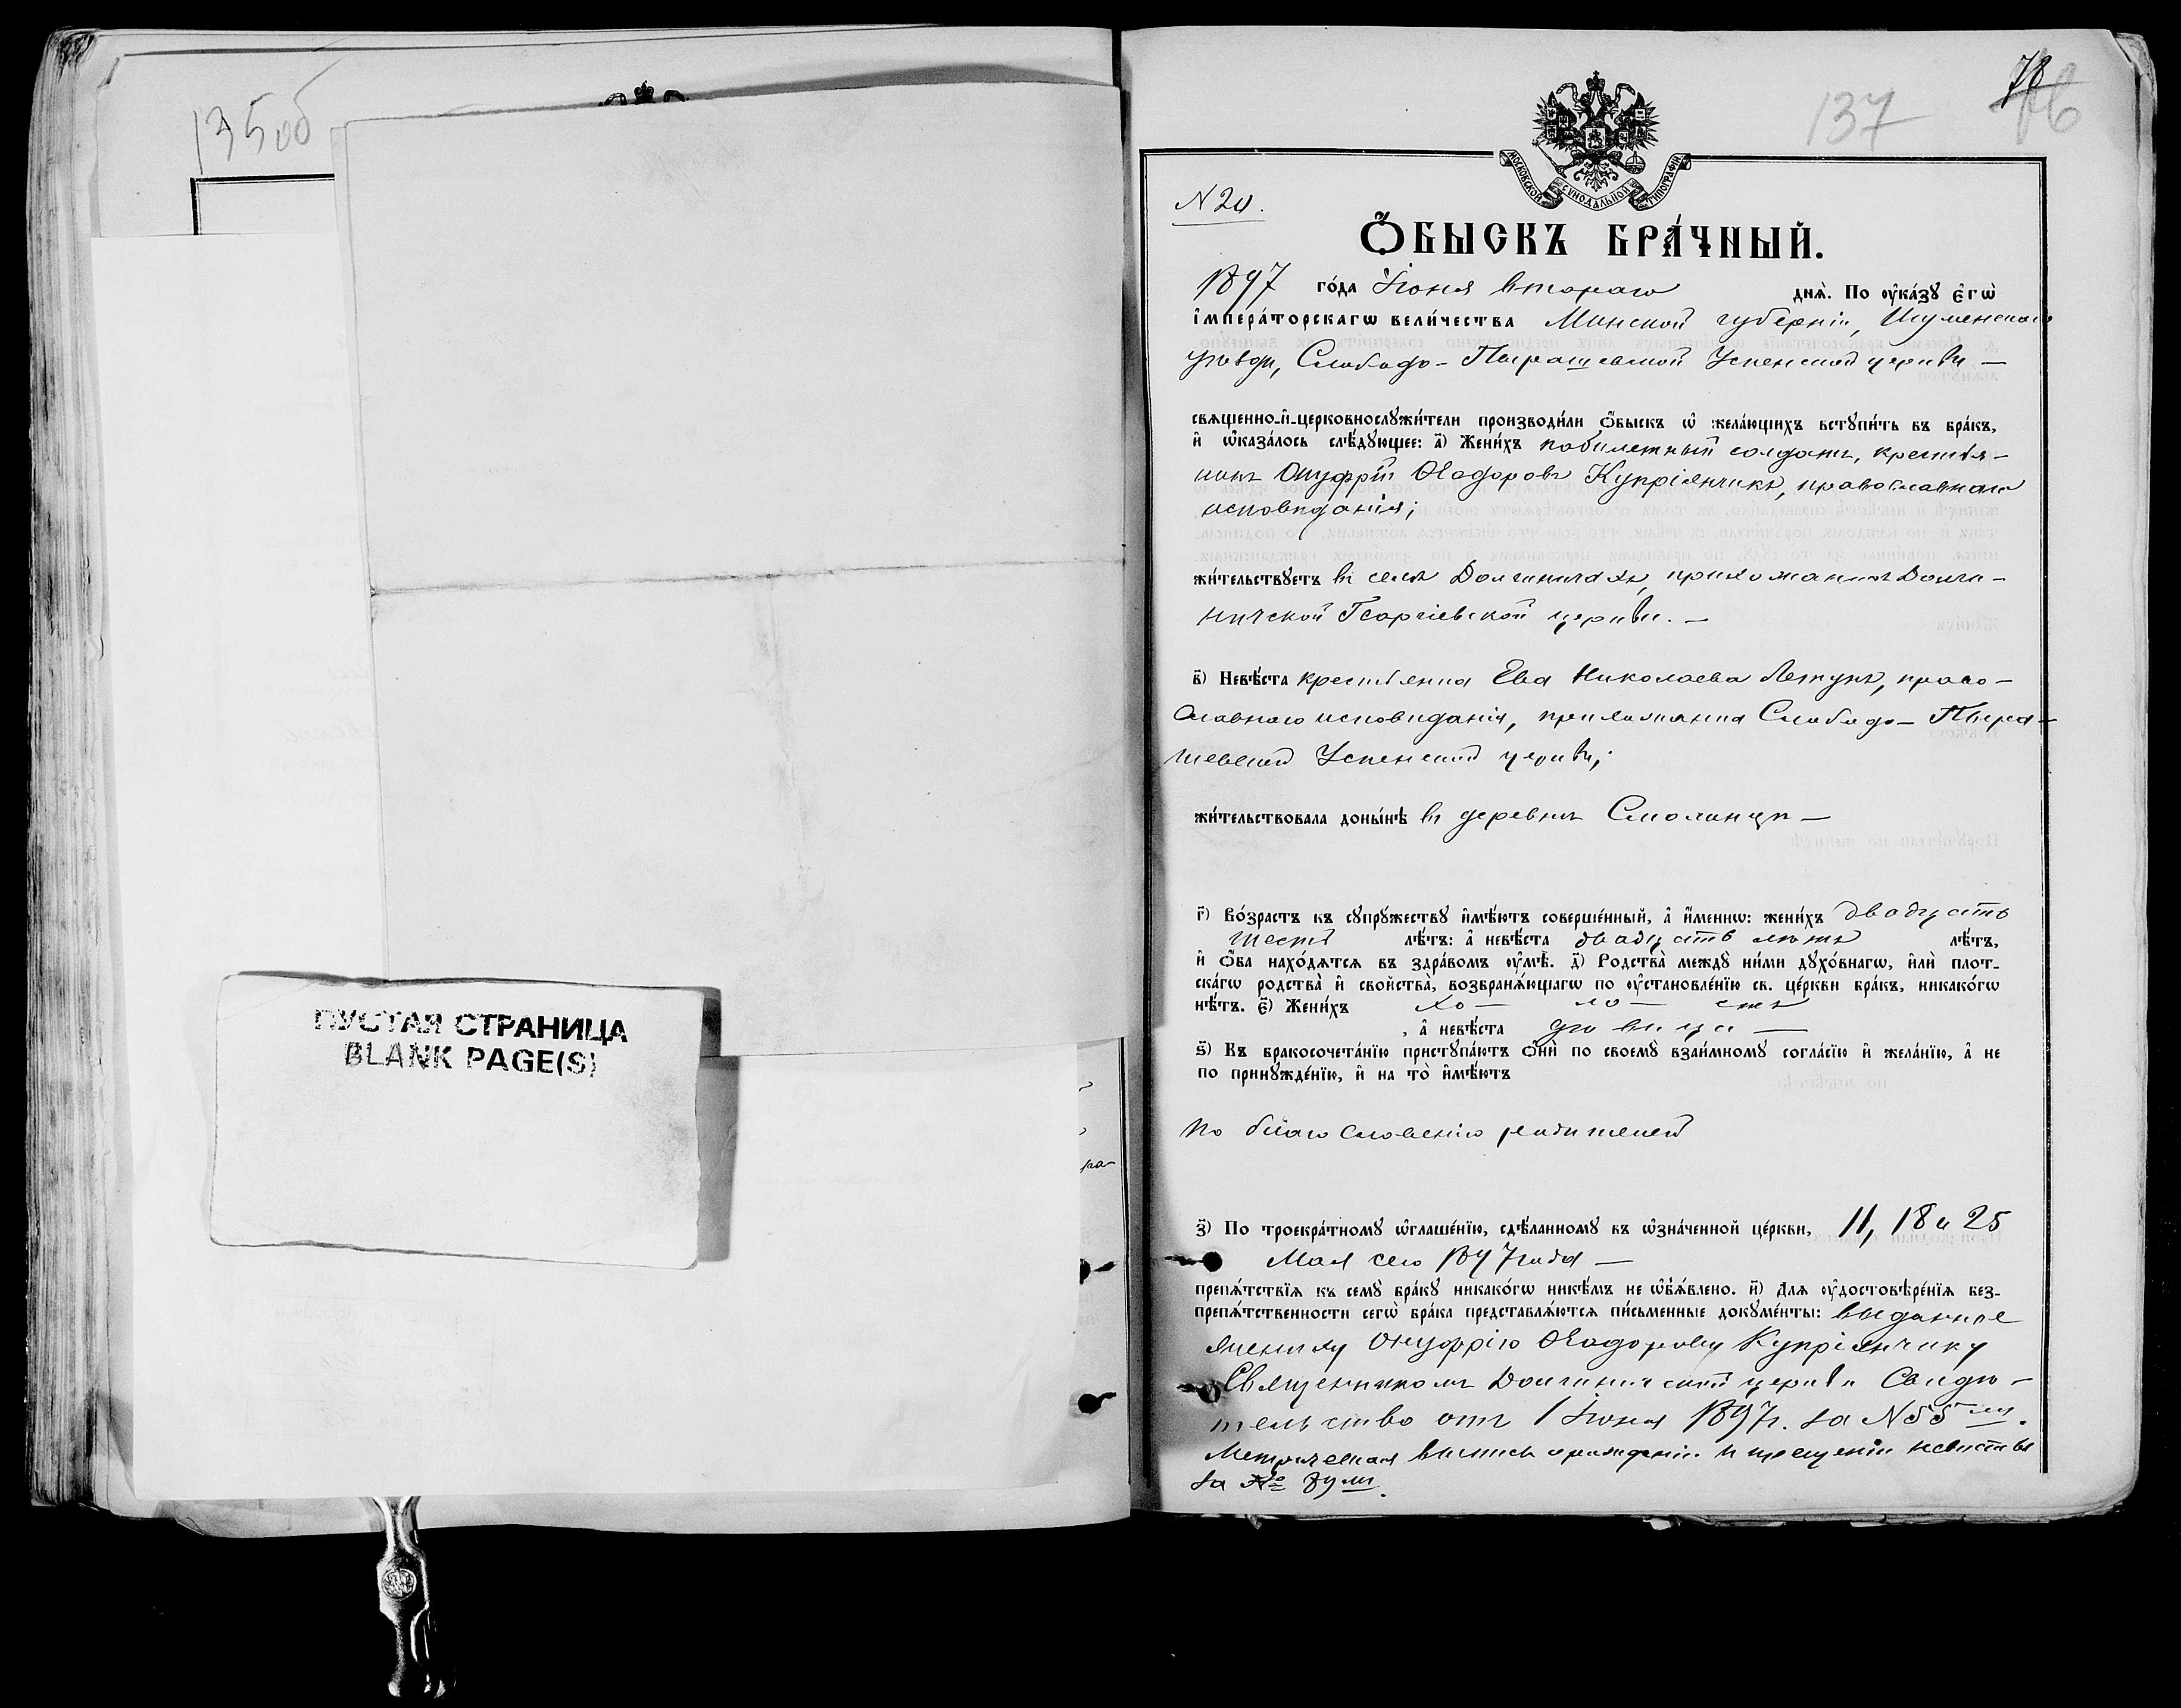 135 об
ПУСТАЯ СТРАНИЦА
BLANK PAGE(S)
137
МОСКОВСКОЙ СѴНОДАЛЬНОЙ ТИПОГРАФІИ
N 20.
Ѻ҆БЫСКЪ БРА́ЧНЫЙ.
1897 го́да Іюня втораго днѧ̀. По ᲂу҆ка́зꙋ є҆гѡ̀
і҆мпера́торскагѡ вели́чества Минской губерніи, Игуменскаго
уѣзда, Слободо-Пырашевской Успенской церкви —
свѧщенно-и҆-церковнослꙋжи́тели производи́ли ѻ҆́быскъ ѡ҆ жела́ющихъ встꙋпи́ть въ бра́къ,
и҆ ѡ҆каза́лось слѣ́дꙋющее: а҃) Жени́хъ побилетный солдатъ, крестья-
нинъ Онуфрій Ѳеодоровъ Купріянчикъ, православнаго
исповѣданія;
жи́тельствꙋетъ въ селѣ Долгиничахъ, прихожанинъ Долги-
ничской Георгіевской церкви. —
в҃) Невѣ́ста крестьянка Ева Николаева Летунъ, право-
славнаго исповѣданія, прихожанка Слободо-Пыра-
шевской Успенской церкви;
жи́тельствовала доны́нѣ въ деревнѣ Смолянцѣ —
г҃) Во́зрастъ къ сꙋпрꙋ́жествꙋ и҆мѣ́ютъ соверше́нный, а҆ и҆́меннѡ: жени́хъ двадцать
шесть лѣ́тъ: а҆ невѣ́ста двадцать лѣтъ лѣ́тъ,
и҆ ѻ҆́ба нахо́дѧтсѧ въ здра́вомъ ᲂу҆мѣ̀. д҃) Родства̀ междꙋ̀ ни́ми дꙋхо́внагѡ, и҆лѝ плот-
ска́гѡ родства̀ и҆ сво́йства, возбранѧ́ющагѡ по ᲂу҆становле́нїю св. це́ркви бра́къ, никако́гѡ
нѣ́тъ. є҃) Жени́хъ хо — ло — стъ
, а҆ невѣ́ста дѣвица —
ѕ҃) Къ бракосочета́нїю пристꙋпа́ютъ ѻ҆нѝ по своемꙋ̀ взаи́мномꙋ согла́сїю и҆ жела́нїю, а҆ не
по принꙋжде́нїю, и҆ на то̀ и҆мѣ́ютъ
по благословенію родителей
з҃) По троекра́тномꙋ ѡ҆глаше́нїю, сдѣ́ланномꙋ въ ѡ҆зна́ченной це́ркви, 11, 18 и 25
Мая сего 1897 года —
препѧ́тствїѧ къ семꙋ̀ бра́кꙋ никако́гѡ никѣ́мъ не ѡ҆б̾ѧ́влено. и҃) Длѧ ᲂу҆достовѣре́нїѧ без-
препѧ́тственности сегѡ̀ бра́ка представлѧ́ютсѧ пи́сьменные докꙋме́нты: выданное
жениху Онуфрію Ѳеодорову Купріянчику
Священникомъ Долгиничской церкви Свидѣ-
тельство отъ 1 Іюня 1897 г. за N 55 —мъ.
Метрическая выпись о рожденіи и крещеніи невѣсты
за №